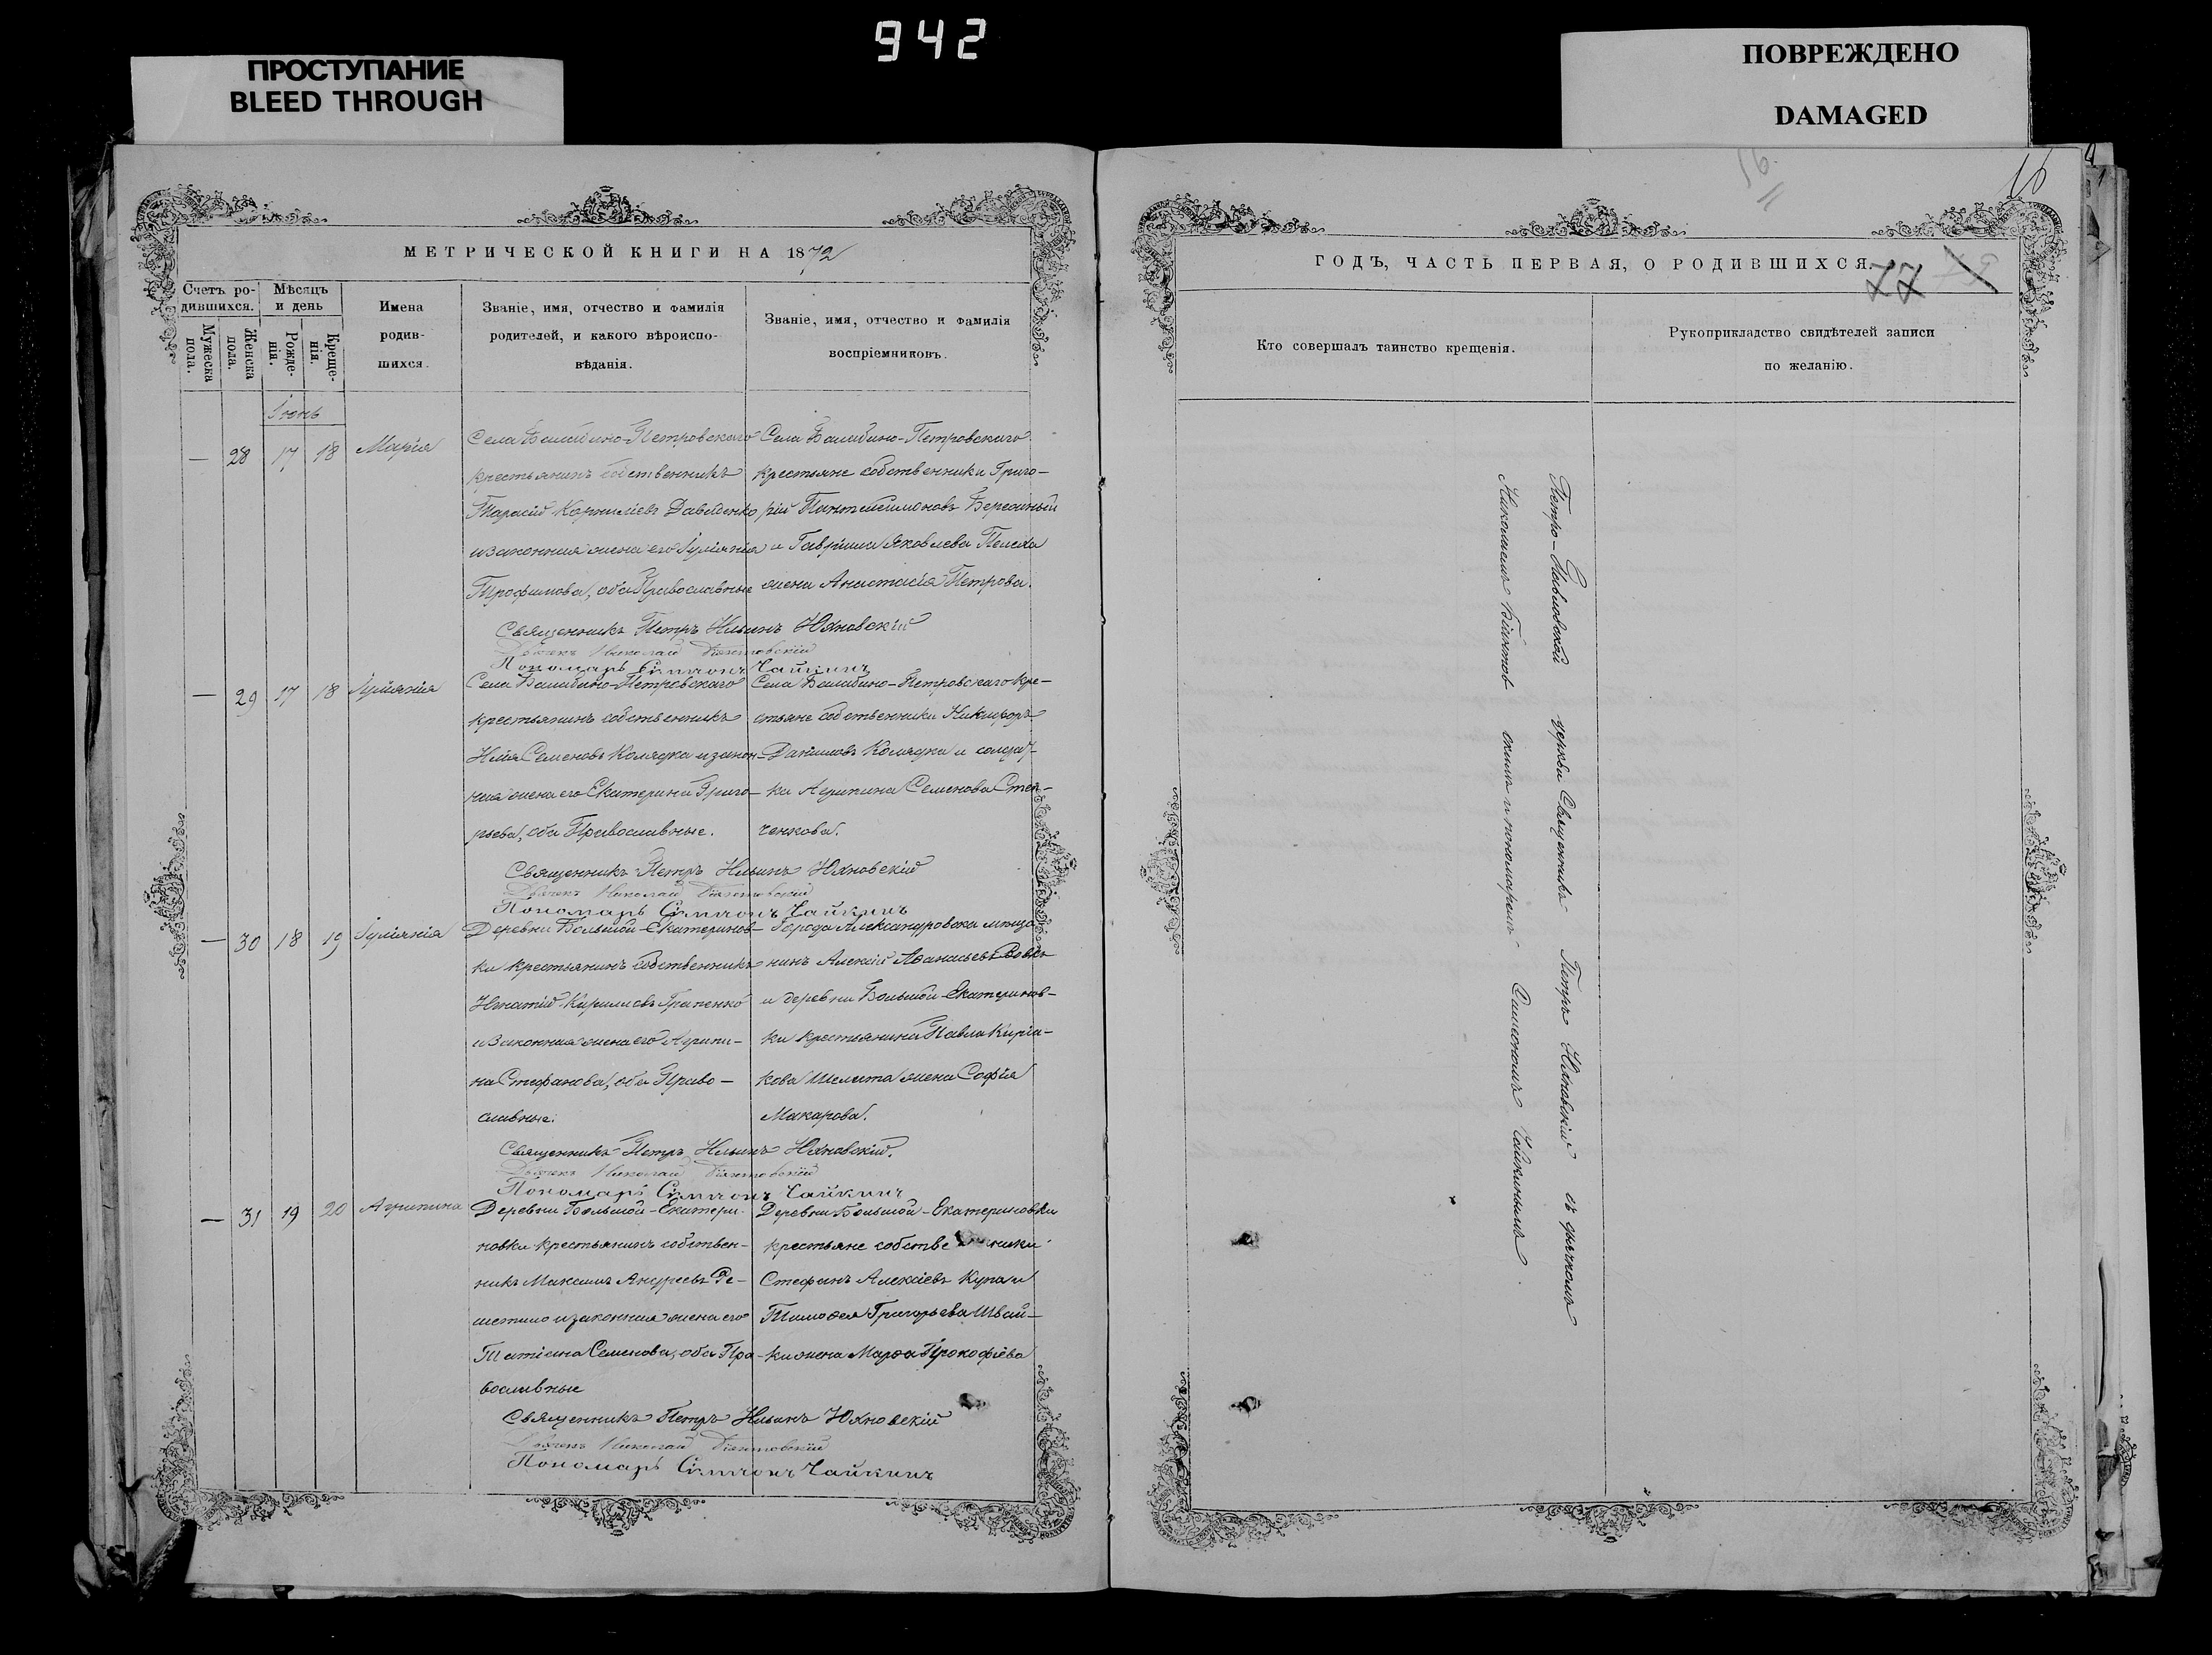 942
ПРОСТУПАНИЕ
BLEED THROUGH
ПОВРЕЖДЕНО
DAMAGED
16
МЕТРИЧЕСКОЙ КНИГИ НА 1872
Счетъ ро-
дившихся.
Мужеска
пола.
Женска
пола.
Мѣсяцъ
и день
Рожде-
нія.
Креще-
нія.
Имена
родив-
шихся.
Званіе, имя, отчество и фамилія
родителей, и какого вѣроиспо-
вѣданія.
Званіе, имя, отчество и фамилія
воспріемниковъ.
Іюнь
— 28 17 18 Марія
Села Балабино-Петровскаго
крестьянинъ собственникъ
Тарасій Корниліевъ Давиденко
и законная жена его Іуліанія
Трофимова, оба Православные
Села Балабино-Петровскаго
крестьяне собственники Григо-
рій Пантелеимоновъ
и Гавріила Яковлева
жена Анастасія Петрова.
Священникъ Петръ Ильинъ Юхновскій
Дьячекъ Николай
Пономарь Симеонъ Чайкинъ
— 29 17 18 Іуліанія
Села Балабино-Петровскаго
крестьянинъ собственникъ
Илія Семеновъ Колядка и закон-
ная жена его Екатерина Григо-
рьева, оба Православные.
Села Балабино-Петровскаго кре-
стьяне собственники Никифоръ
Даніиловъ Колядка и солдат-
ка Агрипина Семенова Степ-
ченкова.
Священникъ Петръ Ильинъ Юхновскій
Дьячекъ Николай
Пономарь Симеонъ Чайкинъ
— 30 18 19 Іуліанія
Деревни Большой-Екатеринов-
ки крестьянинъ собственникъ
Игнатій Кириловъ
и законная жена его Агрипи-
на Стефанова, оба Право-
славные.
Города Александровска мѣща-
нинъ Алексій Аѳанасьевъ
и деревни Большой-Екатеринов-
ки крестьянина Павла Киріа-
кова Шелета жена Софія
Макарова.
Священникъ Петръ Ильинъ Юхновскій.
Дьячекъ Николай
Пономарь Симеонъ Чайкинъ
— 31 19 20 Агрипина
Деревни Большой-Екатери-
новки крестьянинъ собствен-
никъ Максимъ Андреевъ Ре-
шетило и законная жена его
Татіана Семенова, оба Пра-
вославные
Деревни Большой-Екатериновки
крестьяне собственники
Стефанъ Алексіевъ Купа и
Тимоѳея Григорьева Швай-
ки жена Марѳа Прокофіева
Священникъ Петръ Ильинъ Юхновскій
Дьячекъ Николай
Пономарь Симеонъ Чайкинъ
ГОДЪ, ЧАСТЬ ПЕРВАЯ, О РОДИВШИХСЯ
77
Кто совершалъ таинство крещенія.
Рукоприкладство свидѣтелей записи
по желанію.
Петро-Павловской церкви Священникъ Петръ Юхновскій съ дьячкомъ
Николаемъ и пономаремъ Симеономъ Чайкинымъ.